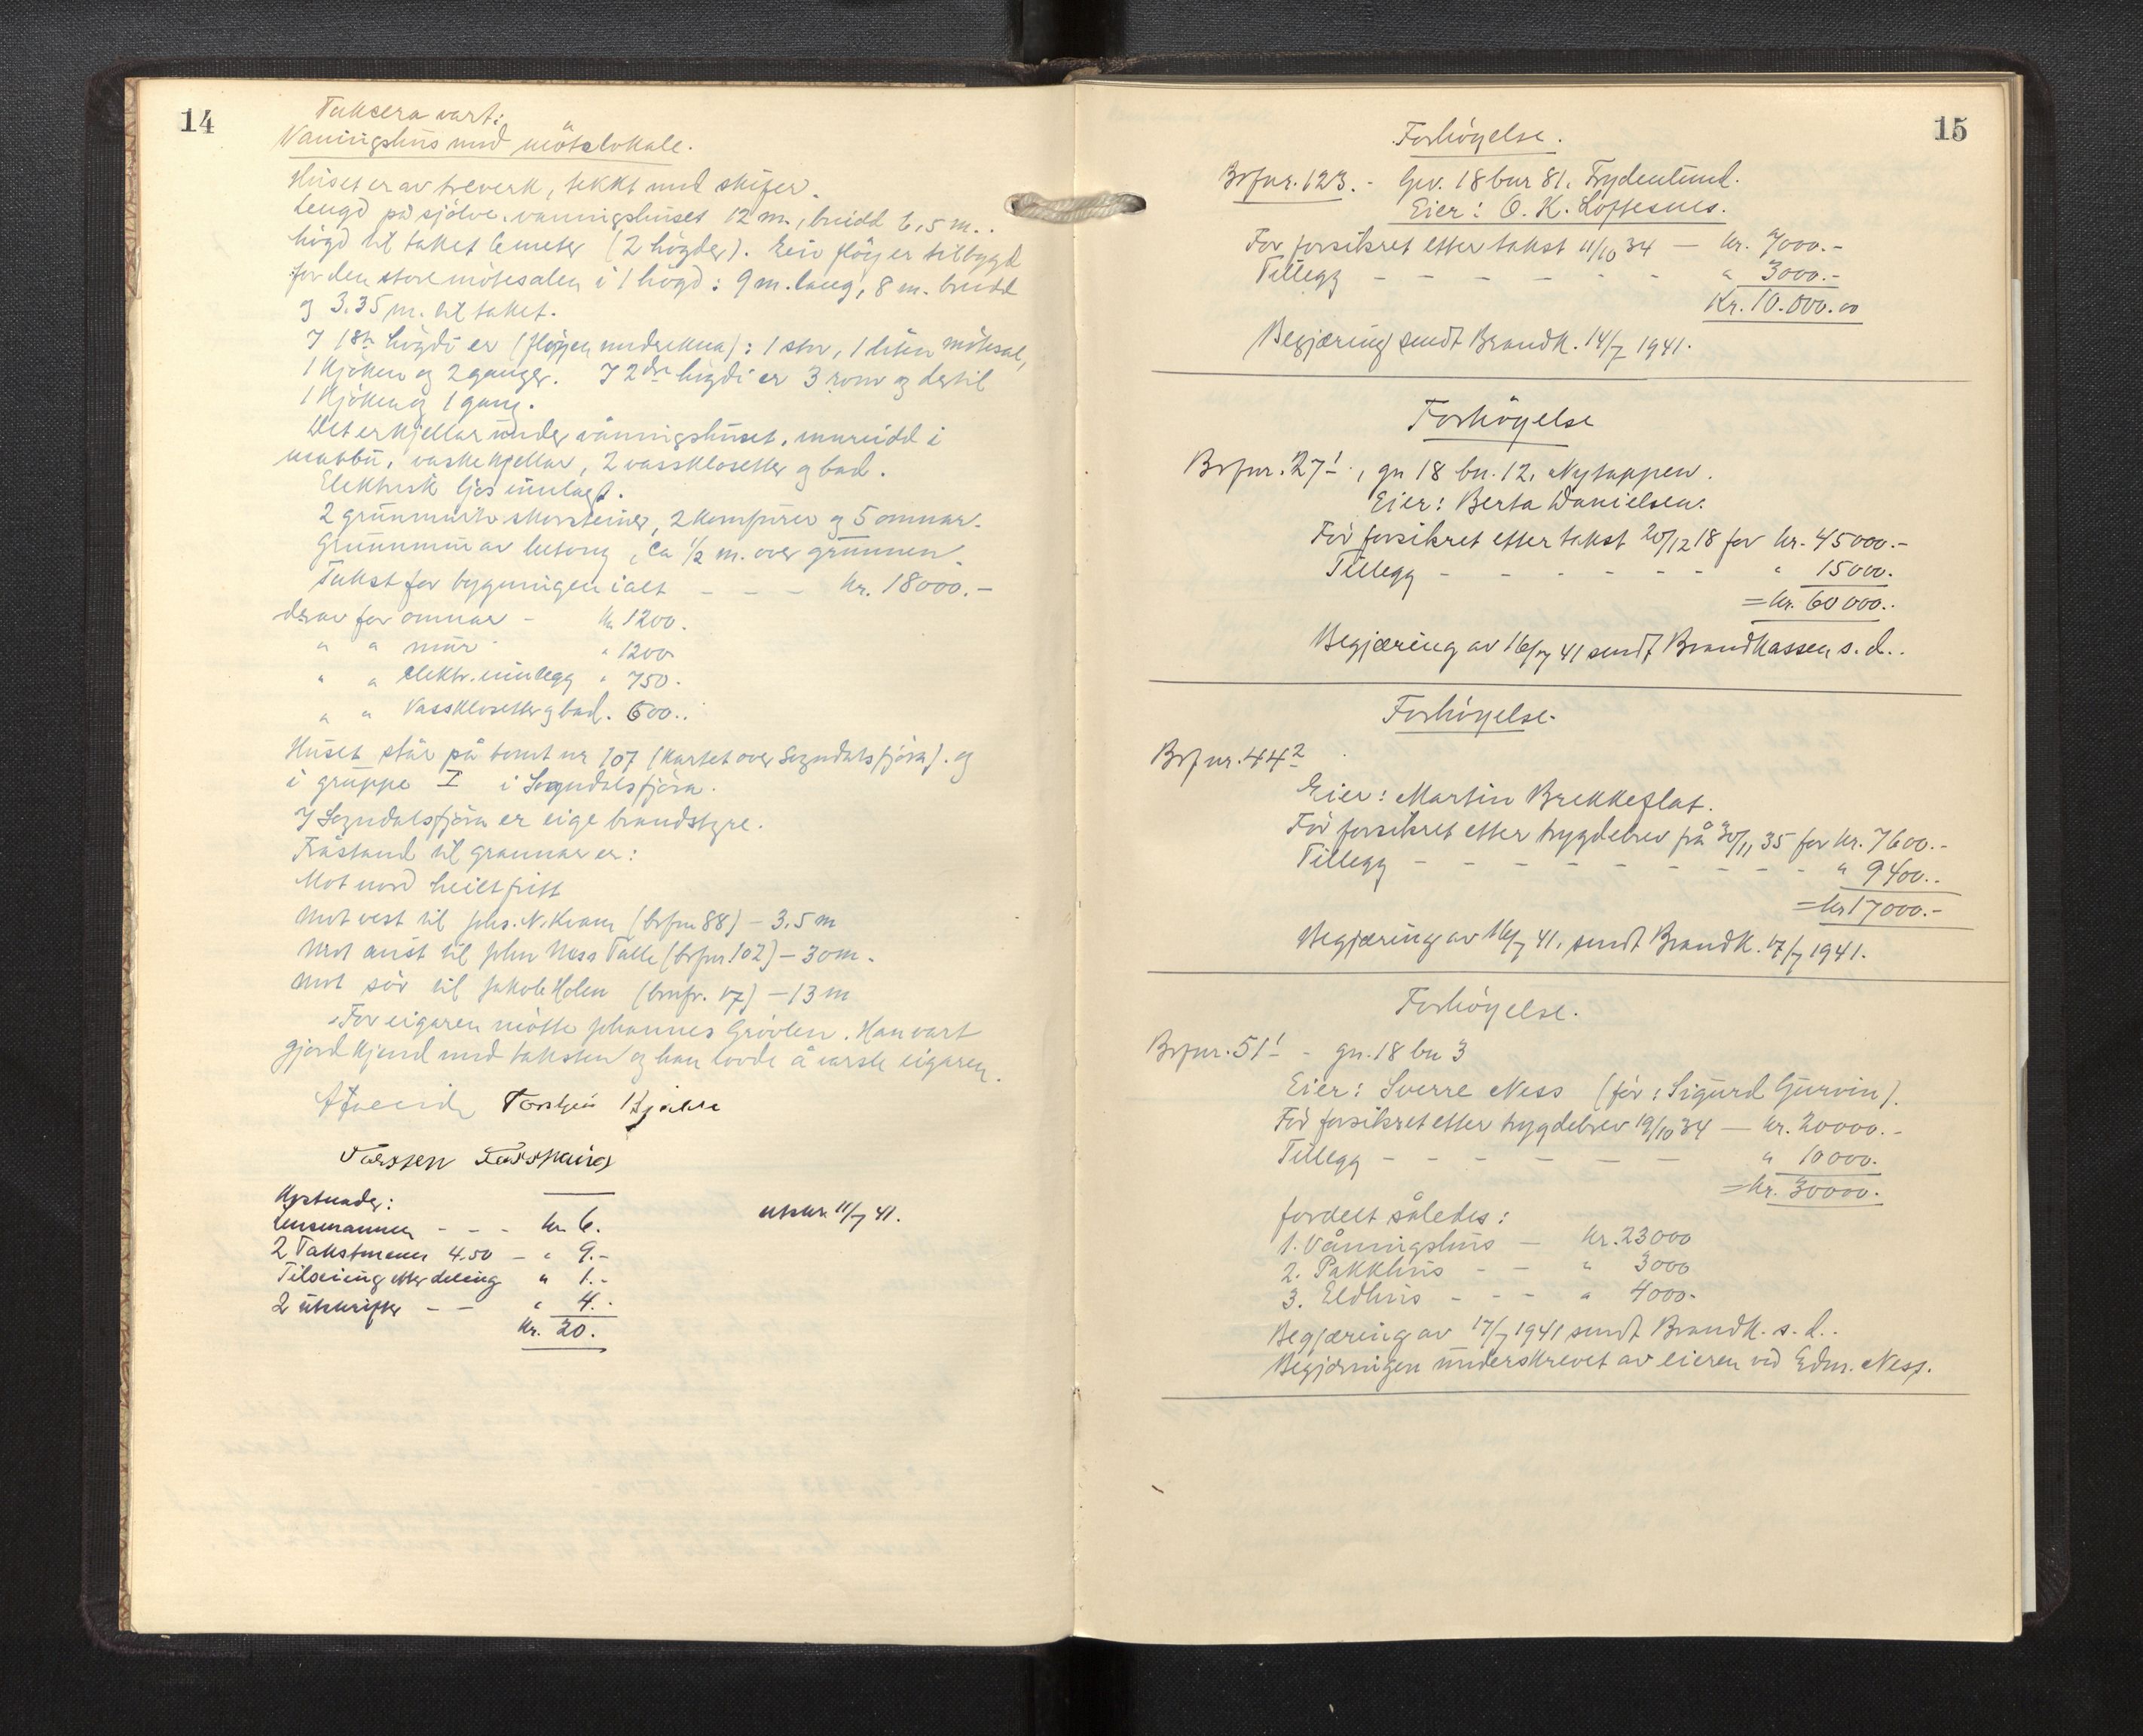 14
Taksera vart:
Våningshus med møtelokale.
Huset er av treverk, tekkt med skifer.
Lengd på sjølve våningshuset 12 m., breidd 6,5 m..
høgd til taket 6 meter (2 høgder). Ein fløy er tilbygd
for den store møtesalen i 1 høgd: 9 m. lang, 8 m. breidd
og 3.35 m. til taket.
I 1ste høgdi er (fløyen medrekna): 1 stor, 1 liten møtesal,
1 kjøken og 2 ganger. I 2dre høgdi er 3 rom og dertil
1 kjøken og 1 gang.
Det er kjellar under våningshuset, innreidd i
matbu, vaskekjellar, 2 vassklosetter og bad.
Elektrisk ljos innlagt.
2 grunnmura skorsteiner, 2 komfurer og 5 omnar.
Grunnmur av betong, ca 1/2 m. over grunnen.
Takst for bygningen i alt - - - kr. 18000.-
derav for omnar - kr 1200.
" " mur " 1200
" " elektr. innlegg " 750.
" " Vassklosetter og bad. 600..
Huset står på tomt nr 107 (kartet over Sogndalsfjøra). og
i gruppe I i Sogndalsfjøra.
I Sogndalsfjøra er eige brandstyre.
Fråstand til grannar er:
Mot nord heilt fritt
Mot vest til Johs. N. Kvam (brfnr 88) - 3,5 m
Mot aust til John Ness Talle (brfnr. 102) - 30 m.
Mot sør til Jakob Holen (brnfr. 17) - 13 m
For eigaren møtte Johannes Grøvlen. Han vart
gjord kjend med taksten og han lovde å varsle eigaren.
Torstein Hjelle
Kostnader:
Lensmannen - - - kr 6.
2 Takstmenn 4.50 - " 9.-
Tilseiing etter deling " 1.-
2 utskrifter - - " 4.-
Kr. 20.
utskr. 11/7 41.
15
Forhøyelse.
Brfnr. 123. - Gnr. 18 bnr 81. Frydenlund.
Eier: O. K. Loftesnes.
Før forsikret etter takst 11/10 34 - kr. 7000.-
Tillegg - - - - - - " 3000.-
Kr. 10.000.00
Begjæring sendt Brandk. 14/7 1941.
Forhøyelse
Brfnr. 27 1, gn 18 bn. 12. Nytappen.
Eier: Berta Danielsen.
Før forsikret etter takst 20/12 18 for kr. 45000.-
Tillegg - - - - - - " 15000.
= kr. 60000..
Begjæring av 16/7 41 sendt Brandkassen s. d..
Forhøyelse.
Brfnr. 44 2
Eier: Martin Brekkeflat.
Før forsikret etter trygdebrev på 30/11 35 for kr. 7600.-
Tillegg - - - - - - - - - " 9400..
= kr 17000.-
Begjæring av 16/7 41, sendt Brandk. 17/7 1941.
Forhøyelse.
Brfnr. 51 1 - gn. 18 bn 3
Eier: Sverre Ness (før: Sigurd Gurvin).
Før forsikret etter trygdebrev 19/10 34 - kr. 20000.-
Tillegg - - - - - - " 10000.
= kr. 30000.
fordelt således:
1. Våningshus - kr. 23000
2. Pakkhus - - " 3000
3. Eldhus - - - " 4000-
Begjæring av 17/7 1941 sendt Brandk. s. d..
Begjæringen underskrevet av eieren ved Edm. Ness.